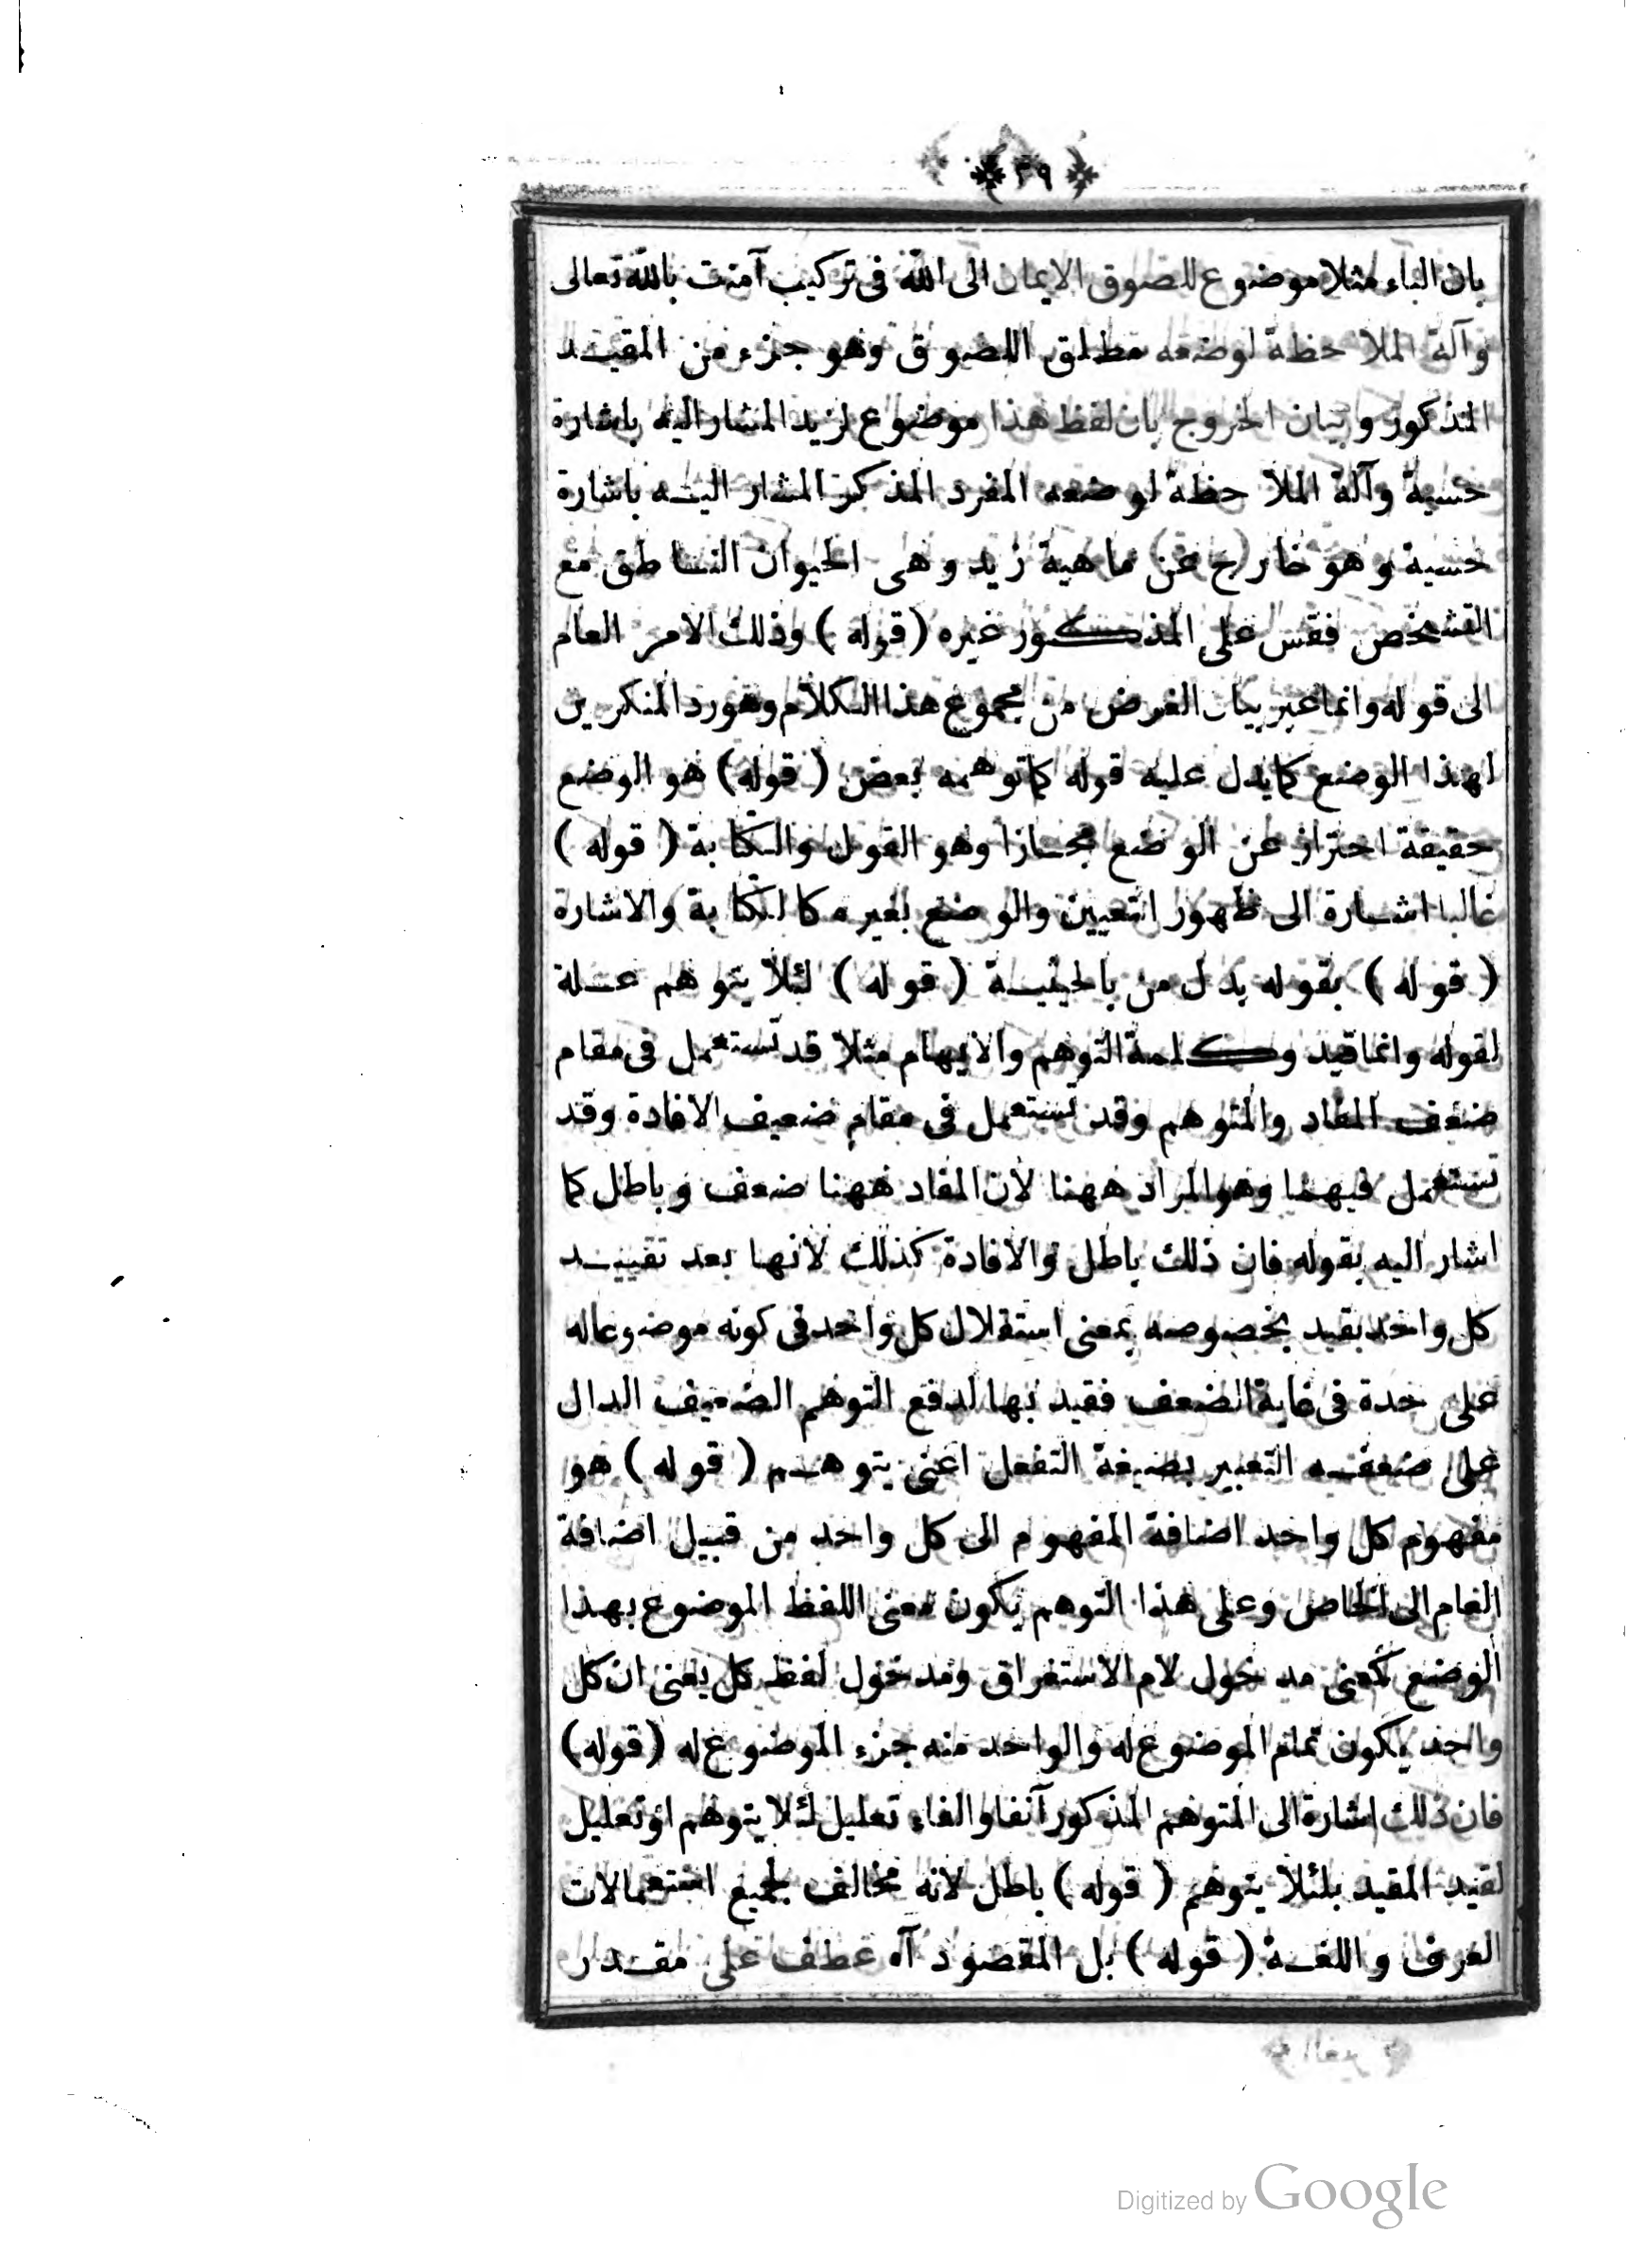 ٣٩
بان الباء مثلا موضوع للصوق الايمان الى الله فى تركيب آمنت بالله تعالى
وآلة الملاحظة لوضعه مطلق اللصوق وهو جزء من المقيد
المذكور وبيان الخروج بان لفظ هذا موضوع لزيد المشار اليه باشارة
حسية وآلة الملاحظة لوضعه المفرد المذكر المشار اليه باشارة
حسية وهو خارج عن ماهية زيد وهى الحيوان الناطق مع
التشخص فقس على المذكور غيره (قوله) وذلك الامر العام
الى قوله وانما عبر بيان الغرض من مجموع هذا الكلام وهورد المنكرين
لهذا الوضع كما يدل عليه قوله كما توهمه بعض (قوله) هو الوضع
حقيقة احتراز عن الوضع مجازا وهو القول والكتابة (قوله)
غالبا اشارة الى ظهور التعيين والوضع بغيره كالكتابة والاشارة
(قوله) بقوله بدل من بالحيثية (قوله) لئلا يتوهم علة
لقوله وانما قيد وكلمة التوهم والايهام مثلا قد تستعمل فى مقام
ضعف المفاد والمتوهم وقد تستعمل فى مقام ضعيف الافادة وقد
تستعمل فيهما وهو المراد ههنا لان المفاد ههنا ضعف وباطل كما
اشار اليه بقوله فان ذلك باطل والافادة كذلك لانها بعد تقييد
كل واحد بقيد بخصوصه بمعنى استقلال كل واحد فى كونه موضوعا له
على حدة فى غاية الضعف فقيد بها لدفع التوهم الضعيف الدال
على ضعفه التعبير بصيغة التفعل اعنى يتوهم (قوله) هو
مفهوم كل واحد اضافة المفهوم الى كل واحد من قبيل اضافة
العام الى الخاص وعلى هذا التوهم يكون معنى اللفظ الموضوع بهذا
الوضع كمعنى مدخول لام الاستغراق ومدخول لفظ كل يعنى ان كل
واحد يكون تمام الموضوع له والواحد منه جزء الموضوع له (قوله)
فان ذلك اشارة الى المتوهم المذكور آنفا والفاء تعليل لئلا يتوهم او تعليل
لقيد المقيد بلئلا يتوهم (قوله) باطل لانه مخالف لجميع استعمالات
العرف واللغة (قوله) بل المقصود آه عطف على مقدر
Digitized by Google